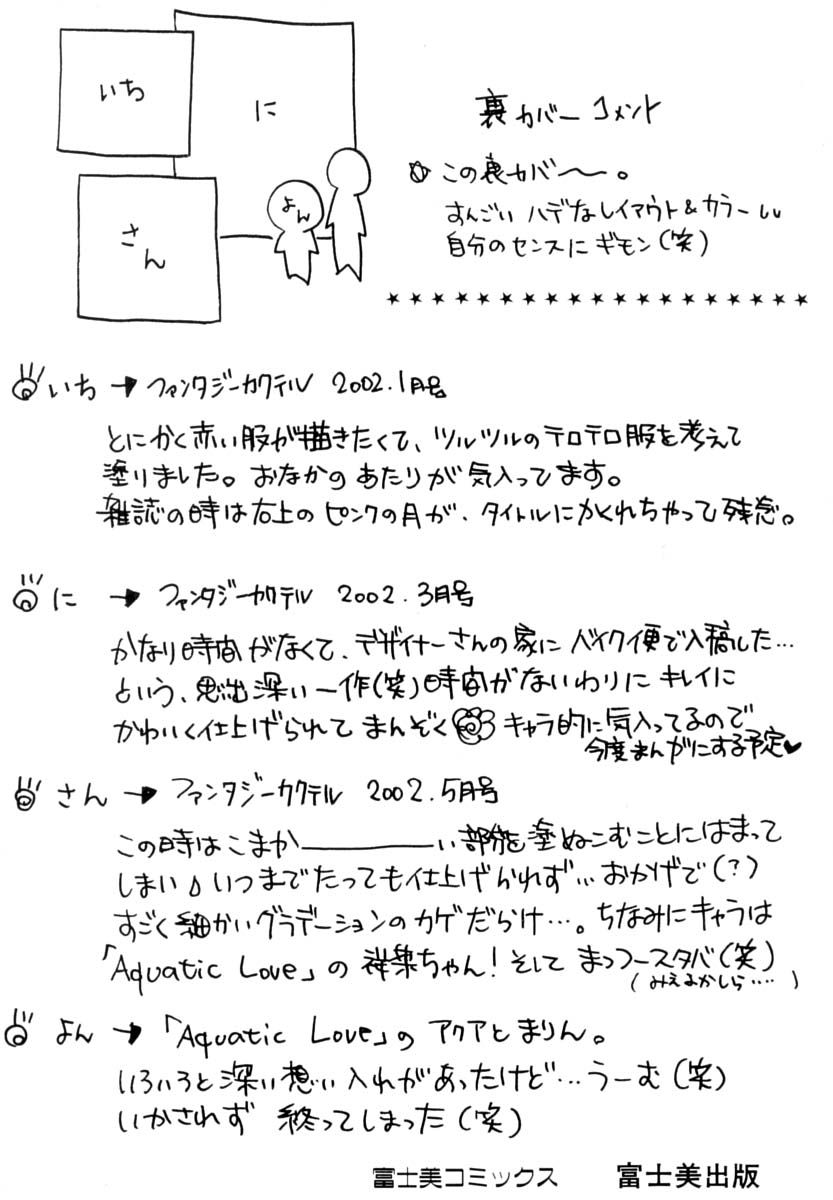 いち
に
さん
よん
裏カバーコメント
この裏カバ〜。
すんごいハデなレイアウト&カラーLL
自分のセンスにギモン(笑)
★★★★★★★★★★★★★★★★★★★
いち → ファンタジーカクテル 2002.1月号
とにかく赤い服が描きたくて、ツルツルのテロテロ服を考えて
塗りました。おなかのあたりが気入ってます。
雑誌の時は右上のピンクの月が、タイトルにかくれちゃって残念。
に → ファンタジーカクテル 2002.3月号
かなり時間がなくて、デザイナーさんの家にバイク便で入稿した…
という、思出深い一作(笑)時間がないわりにキレイに
かわいく仕上げられてまんぞく キャラ的に気入ってるので
今度まんがにする予定♥
さん → ファンタジーカクテル 2002.5月号
この時はこまか――――い部分を塗ぬこむことにはまって
しまい♪いつまでたっても仕上げられず… おかげで(?)
すごく細かいグラデーションのカゲだらけ…。ちなみにキャラは
「Aquatic Love」の ちゃん!そして (笑)
(みえるかしら‥‥)
よん → 「Aquatic Love」のアクアとまりん。
いろいろと深い想い入れがあったけど…うーむ(笑)
いかされず 終ってしまった(笑)
富士美コミックス 富士美出版